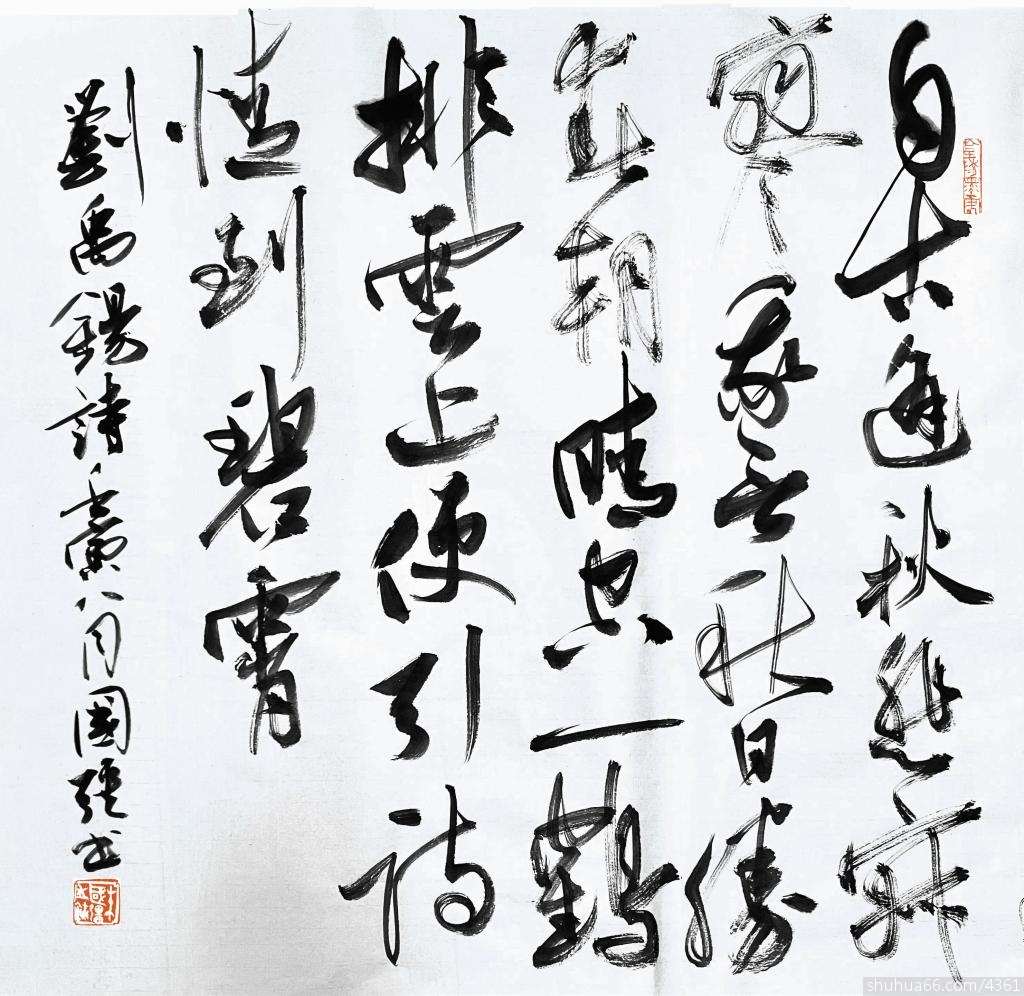 自古逢秋悲寂
寥我言秋日勝
春朝晴空一鶴
排雲上便引詩
情到碧霄
劉禹錫詩壬寅八月國強书
shuhua66.com/4361